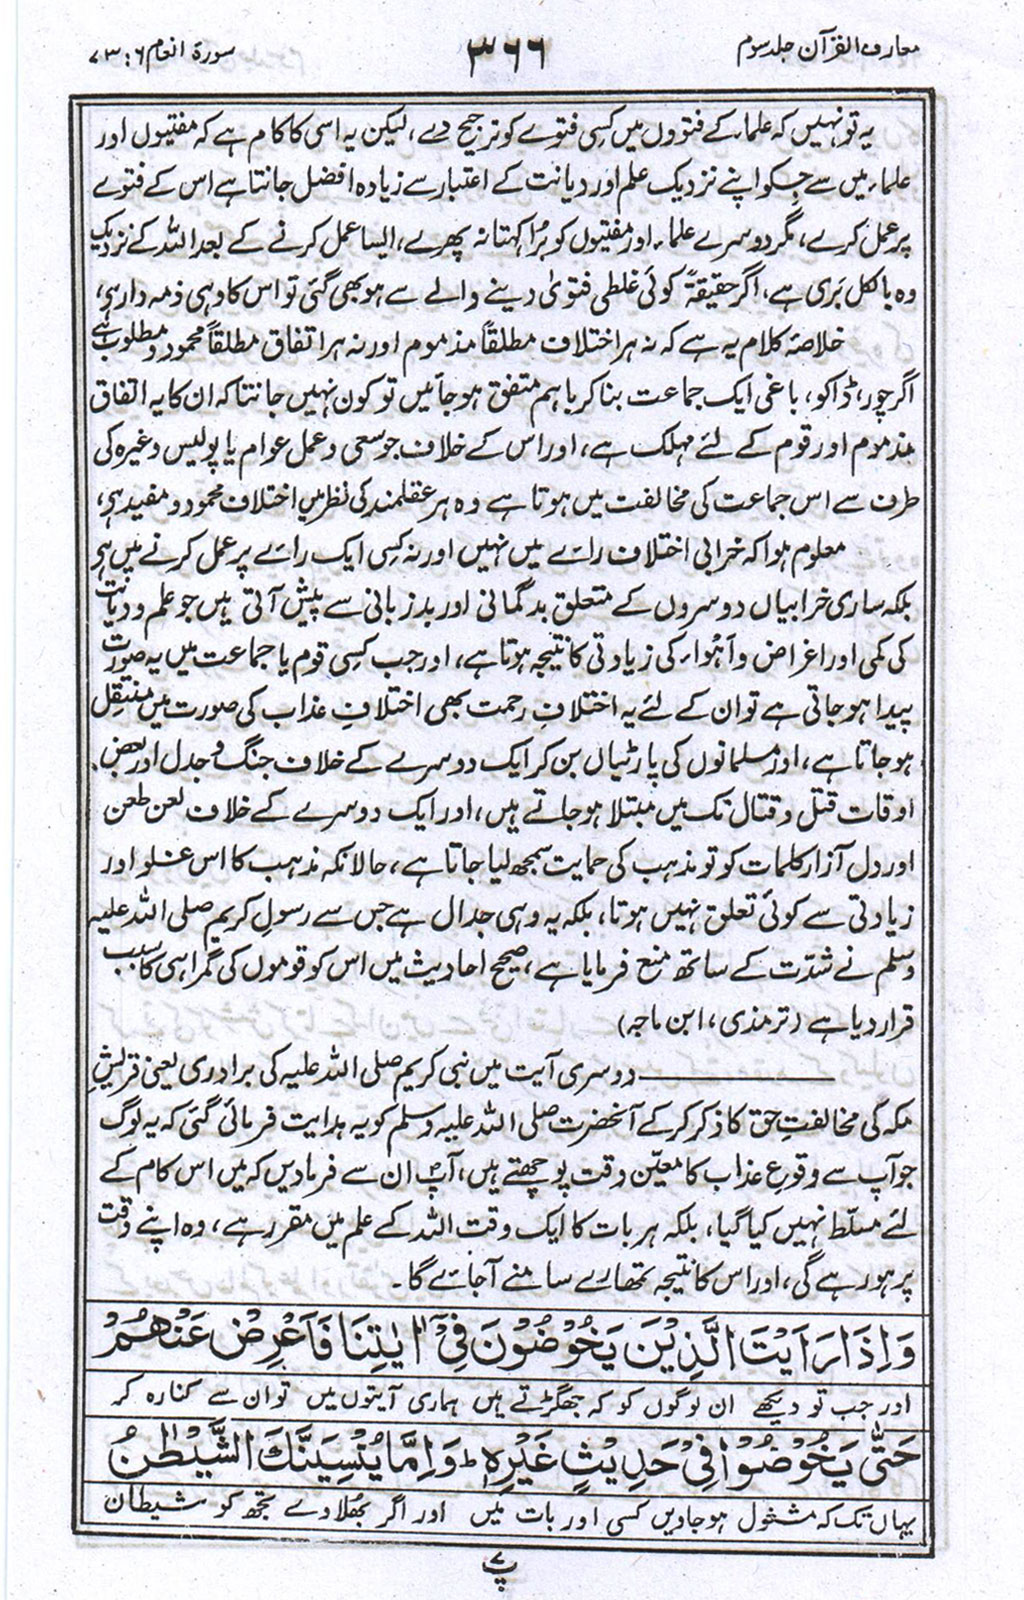 معارف القرآن جلد سوم
۳۶۶
سورۃ انعام ۶ : ۷۳
یہ تو نہیں کہ علماء کے فتووں میں کسی فتوے کو ترجیح دے، لیکن یہ اسی کا کام ہے کہ مفتیوں اور
علماء میں سے جسکو اپنے نزدیک علم اور دیانت کے اعتبار سے زیادہ افضل جانتا ہے اس کے فتوے
پر عمل کرے، مگر دوسرے علماء اور مفتیوں کو بُرا کہتا نہ پھرے، ایسا عمل کرنے کے بعد اللہ کے نزدیک
وہ بالکل بَری ہے، اگر حقیقۃً کوئی غلطی فتویٰ دینے والے سے ہو بھی گئی تو اس کا وہی ذمہ دار ہے،
خلاصۂ کلام یہ ہے کہ نہ ہر اختلاف مطلقاً مذموم اور نہ ہر اتفاق مطلقاً محمود و مطلوب ہے
اگر چور، ڈاکو، باغی ایک جماعت بنا کر باہم متفق ہو جائیں تو کون نہیں جانتا کہ ان کا یہ اتفاق
مذموم اور قوم کے لئے مہلک ہے، اور اس کے خلاف جو سعی و عمل عوام یا پولیس وغیرہ کی
طرف سے اس جماعت کی مخالفت میں ہوتا ہے وہ ہر عقلمند کی نظر میں اختلاف محمود و مفید ہے،
معلوم ہوا کہ خرابی اختلاف رائے میں نہیں اور نہ کسی ایک رائے پر عمل کرنے میں ہے
بلکہ ساری خرابیاں دوسروں کے متعلق بدگمانی اور بدزبانی سے پیش آتی ہیں جو علم و دیانت
کی کمی اور اغراض و اَہْواء کی زیادتی کا نتیجہ ہوتا ہے، اور جب کسی قوم یا جماعت میں یہ صورت
پیدا ہو جاتی ہے تو ان کے لئے یہ اختلافِ رحمت بھی اختلافِ عذاب کی صورت میں منتقل
ہو جاتا ہے، اور مسلمانوں کی پارٹیاں بن کر ایک دوسرے کے خلاف جنگ و جدل اور بعض
اوقات قتل و قتال تک میں مبتلا ہو جاتے ہیں، اور ایک دوسرے کے خلاف لعن طعن
اور دل آزار کلمات کو تو مذہب کی حمایت سمجھ لیا جاتا ہے، حالانکہ مذہب کا اس غلو اور
زیادتی سے کوئی تعلق نہیں ہوتا، بلکہ یہ وہی جدال ہے جس سے رسولِ کریم صلی اللہ علیہ
وسلم نے شدّت کے ساتھ منع فرمایا ہے، صحیح احادیث میں اس کو قوموں کی گمراہی کا سبب
قرار دیا ہے (ترمذی، ابن ماجہ)
دوسری آیت میں نبی کریم صلی اللہ علیہ کی برادری یعنی قریشِ
مکہ کی مخالفتِ حق کا ذکر کرکے آنحضرت صلی اللہ علیہ وسلم کو یہ ہدایت فرمائی گئی کہ یہ لوگ
جو آپ سے وقوعِ عذاب کا معیّن وقت پوچھتے ہیں، آپؐ ان سے فرمادیں کہ میں اس کام کے
لئے مسلّط نہیں کیا گیا، بلکہ ہر بات کا ایک وقت اللہ کے علم میں مقرر ہے، وہ اپنے وقت
پر ہو رہے گی، اور اس کا نتیجہ تمھارے سامنے آجائے گا۔
وَاِذَا رَاَيْتَ الَّذِيْنَ يَخُوْضُوْنَ فِيْٓ اٰيٰتِنَا فَاَعْرِضْ عَنْهُمْ
اور جب تو دیکھے ان لوگوں کو کہ جھگڑتے ہیں ہماری آیتوں میں تو ان سے کنارہ کر
حَتّٰى يَخُوْضُوْا فِيْ حَدِيْثٍ غَيْرِهٖ ؕ وَاِمَّا يُنْسِيَنَّكَ الشَّيْطٰنُ
یہاں تک کہ مشغول ہو جاویں کسی اور بات میں اور اگر بھُلا دے تجھ کو شیطان
پ ۷